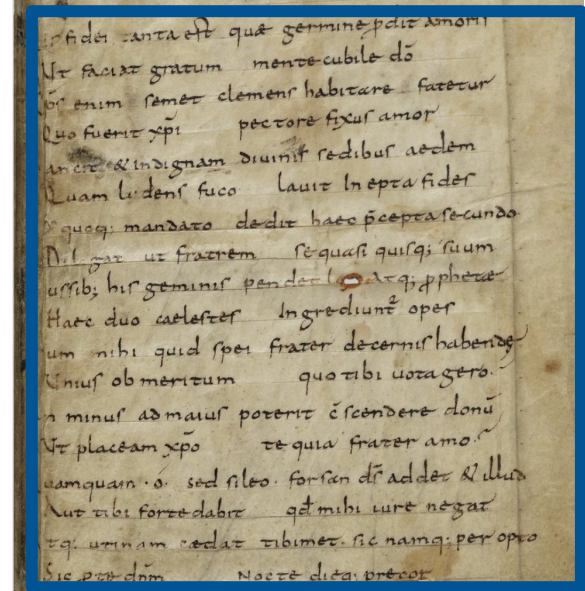 fidei tanta est quæ germine p̄dit amoris
Ut faciat gratum mente cubile dō
enim semet clemens habitare fatetur
Quo fuerit xp̄i pectore fixus amor
& indignam divinis sedibus aedem
Quam livdens fuco lavit Inepta fides
quoq; mandato dedit haec p̄cepta secundo
Diligat ut fratrem se quasi quisq; suum
ussib; his geminis pendet atq; ꝓphetæ
Haec duo caelestes Ingrediunt᷑ opes
um mihi quid spei frater decernis habendę
Unius ob meritum quo tibi vota gero.
n minus ad maius poterit c̄scendere donū
Ut placeam xp̄o te quia frater amo.
uamquam · o · sed sileo · forsan ds̄ addet & illud
Aut tibi forte dabit qd̄ mihi iure negat
tq; utinam cedat tibimet · sic namq; per opto
Sic p te dn̄m Nocte dieq; precor